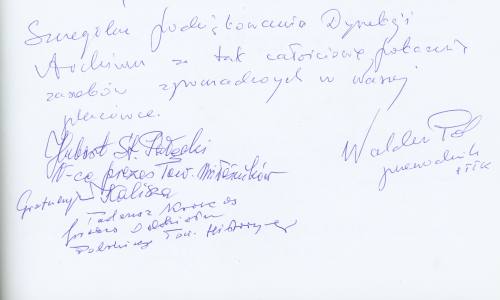 Szczególne podziękowania Dyrekcji
Archiwum za tak całościowe pokazanie
zasobów zgromadzonych w waszej
placówce.
Hubert St.
V-ce prezes Tow. Miłośników
Kalisza
Gratuluję
Tadeusz
prezes Oddziału
Polskiego Tow. Historycznego
Walder
przewodnik
PTTK